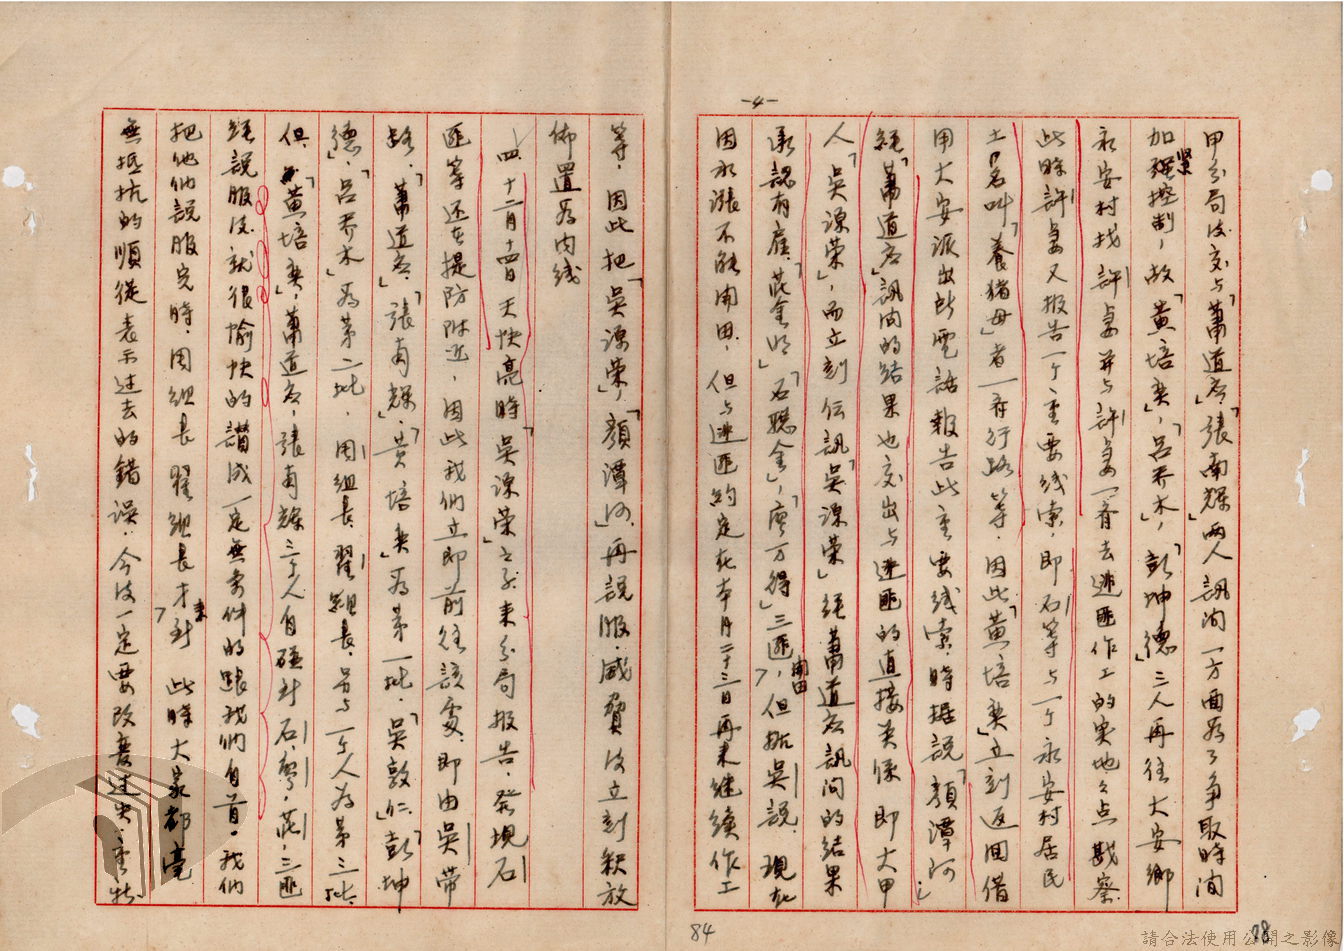 -4-
甲分局後交与「蕭道应」「張南輝」两人訊问一方面為了争取時间
加緊控制,故「黄培奕」,「呂喬木」,「彭坤德」三人再往大安鄉
永安村找許妻并与許妻一齊去逃匪作工的实地之点勘察
此時許妻又报告一个重要线索,即石等与一个永安村居民
土名叫「養猪母」者一齐行路等,因此「黄培奕」立刻返回借
用大安派出所電話報告此重要线索,時据説「顏潭河」
経「蕭道应」訊问的结果也交出与逃匪的直接关係即大甲
人「吳源荣」,而立刻伝訊「吳源荣」経蕭道应訊问的结果
承認有雇「莊金明」「石聰金」,「廖万得」三匪,但据吳説,現在
因水漲不能開田,但与逃匪約定在本月二十三日再来継續作工
等,因此把「吳源荣」,「顏潭河」再説服,威脅後立刻釈放
佈置為内线
四、十二月十四日天快亮時「吳源荣」之子来分局报告,発現石
匪等还在提防附近,因此我们立即前往該處,即由吳带
路,「蕭道应」,「張南輝」,「黄培奕」為第一批,「吳敦仁」「彭坤
德」,「呂喬木」為第二批,周組長,翟組長,另与一个人為第三批,
但「黄培奕」,蕭道应,張南輝三个人自碰到石,廖,莊,三匪
経説服後就很愉快的讃成一定無条件的跟我們自首,我们
把他们説服完時,周組長翟組長才来到 此時大家都毫
無抵抗的順從表示过去的錯誤,今後一定要改变过去,重新
84
88
請合法使用公開之影像